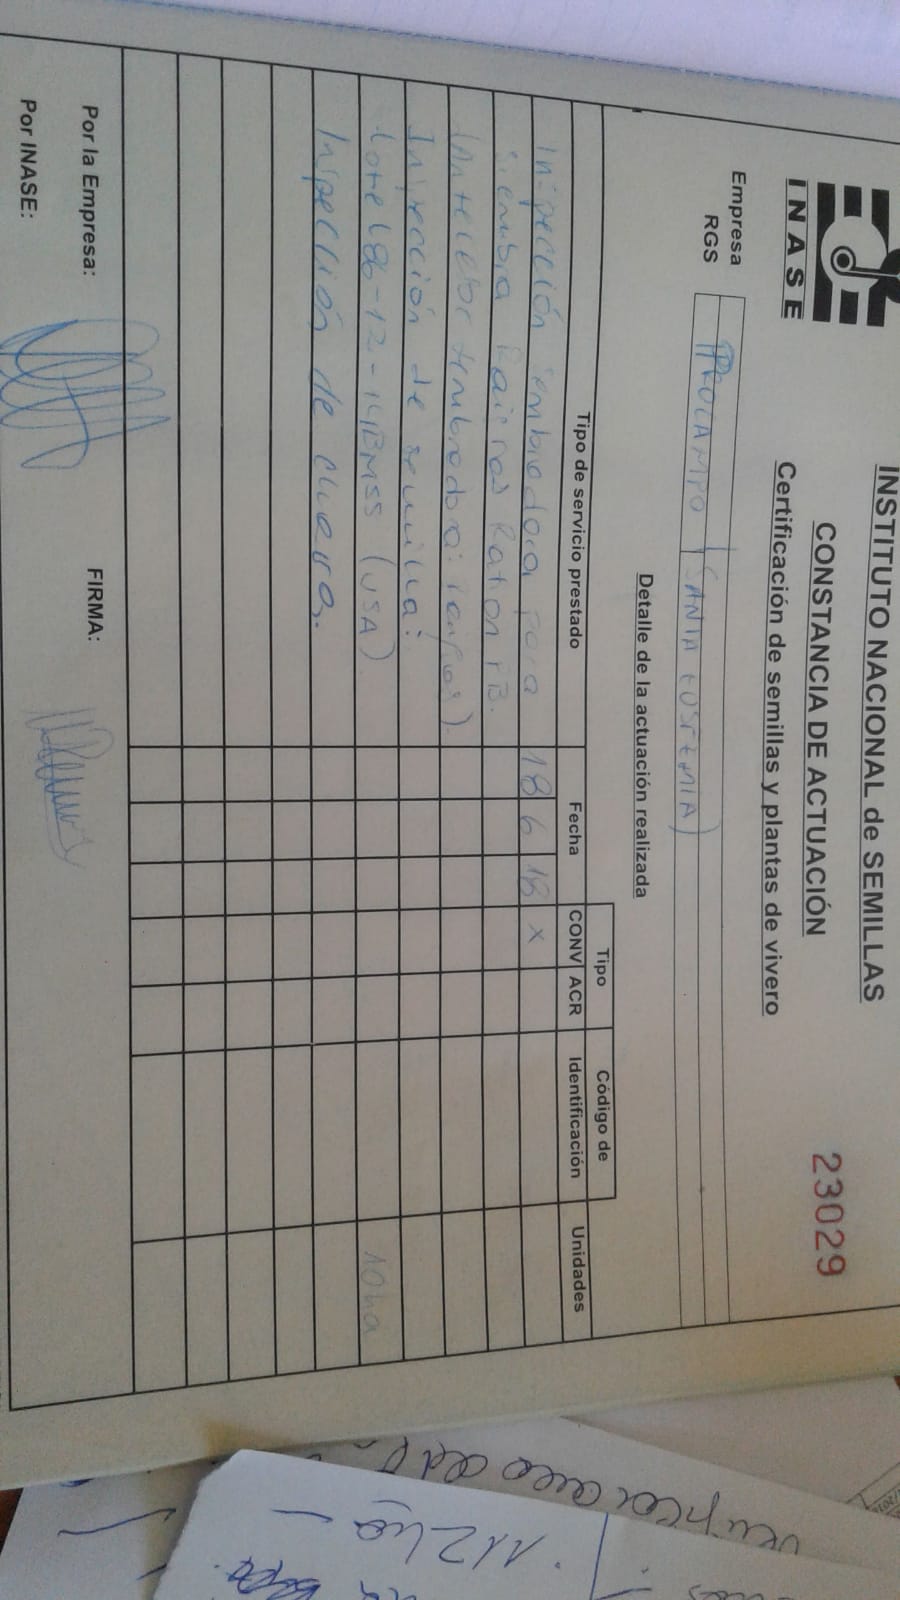 INASE
INSTITUTO NACIONAL de SEMILLAS
CONSTANCIA DE ACTUACIÓN
23029
Certificación de semillas y plantas de vivero
Empresa
RGS
PROCAMPO (SANTA EUSFEMIA)
Detalle de la actuación realizada
Tipo de servicio prestado
Fecha
Tipo
CONV ACR
Código de
Identificación
Unidades
Inspección sembradora para 18 6 18 X
siembra Raigras Ration PB.
(Antecesor sembradora:
Inspección de semilla:
Lote L86-12-14BMSS (USA) 10ha
Inspección de chacra.
Por la Empresa:
FIRMA:
Por INASE:
112 ha